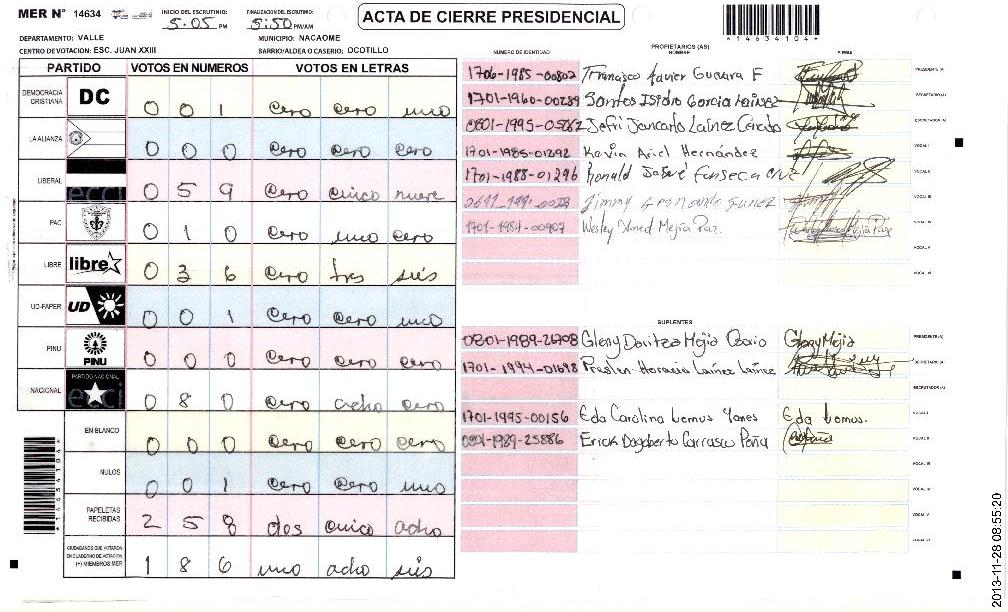 MER N° 14634
INICIO DEL ESCRUTINIO: 5:05 PM
FINALIZACION DEL ESCRUTINIO: 5:50 PM/AM
ACTA DE CIERRE PRESIDENCIAL
*14634104*
DEPARTAMENTO: VALLE
MUNICIPIO: NACAOME
CENTRO DE VOTACION: ESC. JUAN XXIII
BARRIO/ALDEA O CASERIO: OCOTILLO
PARTIDO VOTOS EN NUMEROS VOTOS EN LETRAS
DEMOCRACIA CRISTIANA DC 0 0 1 cero cero uno
LA ALIANZA 0 0 0 cero cero cero
LIBERAL 0 5 9 cero cinco nueve
PAC 0 1 0 cero uno cero
LIBRE libre 0 3 6 cero tres seis
UD-FAPER UD 0 0 1 cero cero uno
PINU PINU 0 0 0 cero cero cero
NACIONAL PARTIDO NACIONAL 0 8 0 cero ocho cero
EN BLANCO 0 0 0 cero cero cero
NULOS 0 0 1 cero cero uno
PAPELETAS RECIBIDAS 2 5 8 dos cinco ocho
CIUDADANOS QUE VOTARON EN CUADERNO DE VOTACION (+) MIEMBROS MER 1 8 6 uno ocho seis
PROPIETARIOS (AS)
NUMERO DE IDENTIDAD NOMBRE FIRMA
1706-1985-00802 Francisco Javier Guevara F PRESIDENTE (A)
1701-1960-00289 Santos Isidro Garcia Lainez SECRETARIO (A)
0801-1995-05067 Jefri Jancarlo Lainez Cerrato ESCRUTADOR (A)
1701-1985-01292 Kevin Ariel Hernández VOCAL I
1701-1988-01296 Ronald Fonseca VOCAL II
Jimmy VOCAL III
1701-1989-00907 Wesley Mejia Paz. VOCAL IV
VOCAL V
VOCAL VI
SUPLENTES
0801-1989-26798 Gleny Daritza Mejia Gleny Mejia PRESIDENTE (A)
1701-1994-01698 Preslin Horacio Lainez Lainez SECRETARIO (A)
ESCRUTADOR (A)
1701-1995-00156 Eda Carolina Lemus Yanes Eda Lemus. VOCAL I
0801-1989-25886 Erick Dagoberto Carrasco Peña VOCAL II
VOCAL III
VOCAL IV
VOCAL V
VOCAL VI
2013-11-28 08:55:20